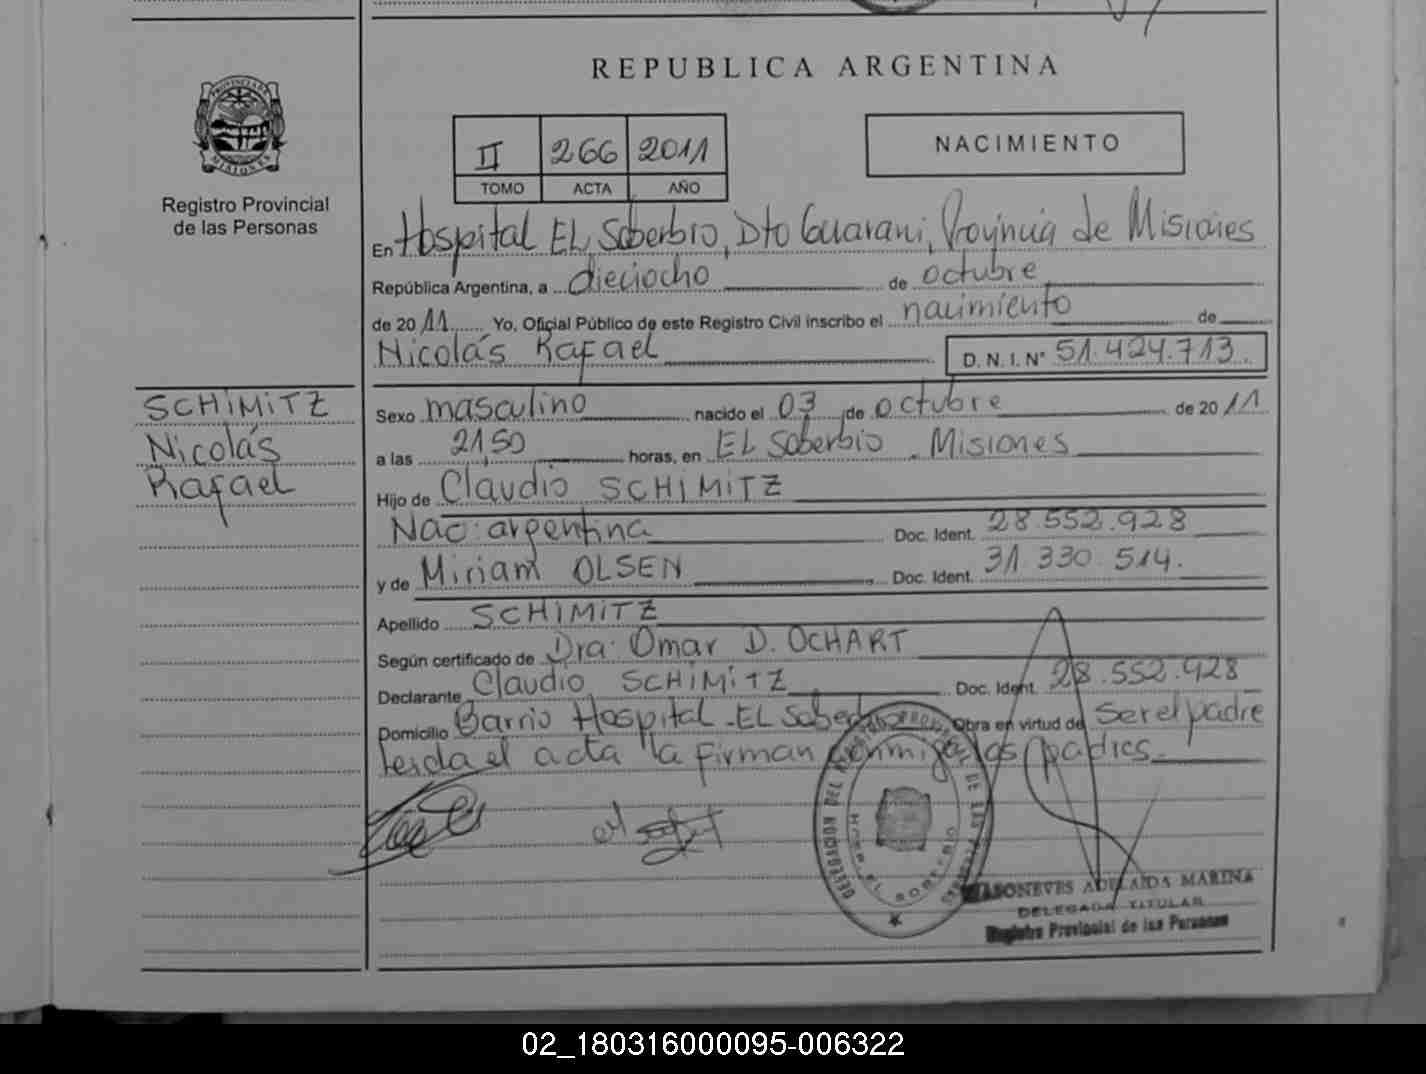 REPUBLICA ARGENTINA
II 266 2011
TOMO ACTA AÑO
NACIMIENTO
PROVINCIA DE MISIONES
Registro Provincial
de las Personas
En Hospital EL Soberbio, Dto Guarani, Provincia de Misiones
República Argentina, a dieciocho de octubre
de 2011 Yo, Oficial Público de este Registro Civil inscribo el nacimiento de
Nicolás Rafael D. N. I. Nº 51.424.713.
SCHIMITZ
Nicolás
Rafael
Sexo masculino nacido el 03 de octubre de 2011
a las 21,50 horas, en EL Soberbio . Misiones
Hijo de Claudio SCHIMITZ
Nac: argentina Doc. Ident. 28.552.928
y de Miriam OLSEN Doc. Ident. 31.330.514.
Apellido SCHIMITZ
Según certificado de Dra. Omar D. OCHART
Declarante Claudio SCHIMITZ Doc. Ident. 28.552.928
Domicilio Barrio Hospital - EL Soberbio Obra en virtud de ser el padre
leida el acta la firman conmigo los padres.
DELEGACION DEL REGISTRO PROVINCIAL DE LAS PERSONAS
HOSP. EL SOBERBIO
ADELAIDA MARINA
DELEGADA TITULAR
Registro Provincial de las Personas
02_180316000095-006322